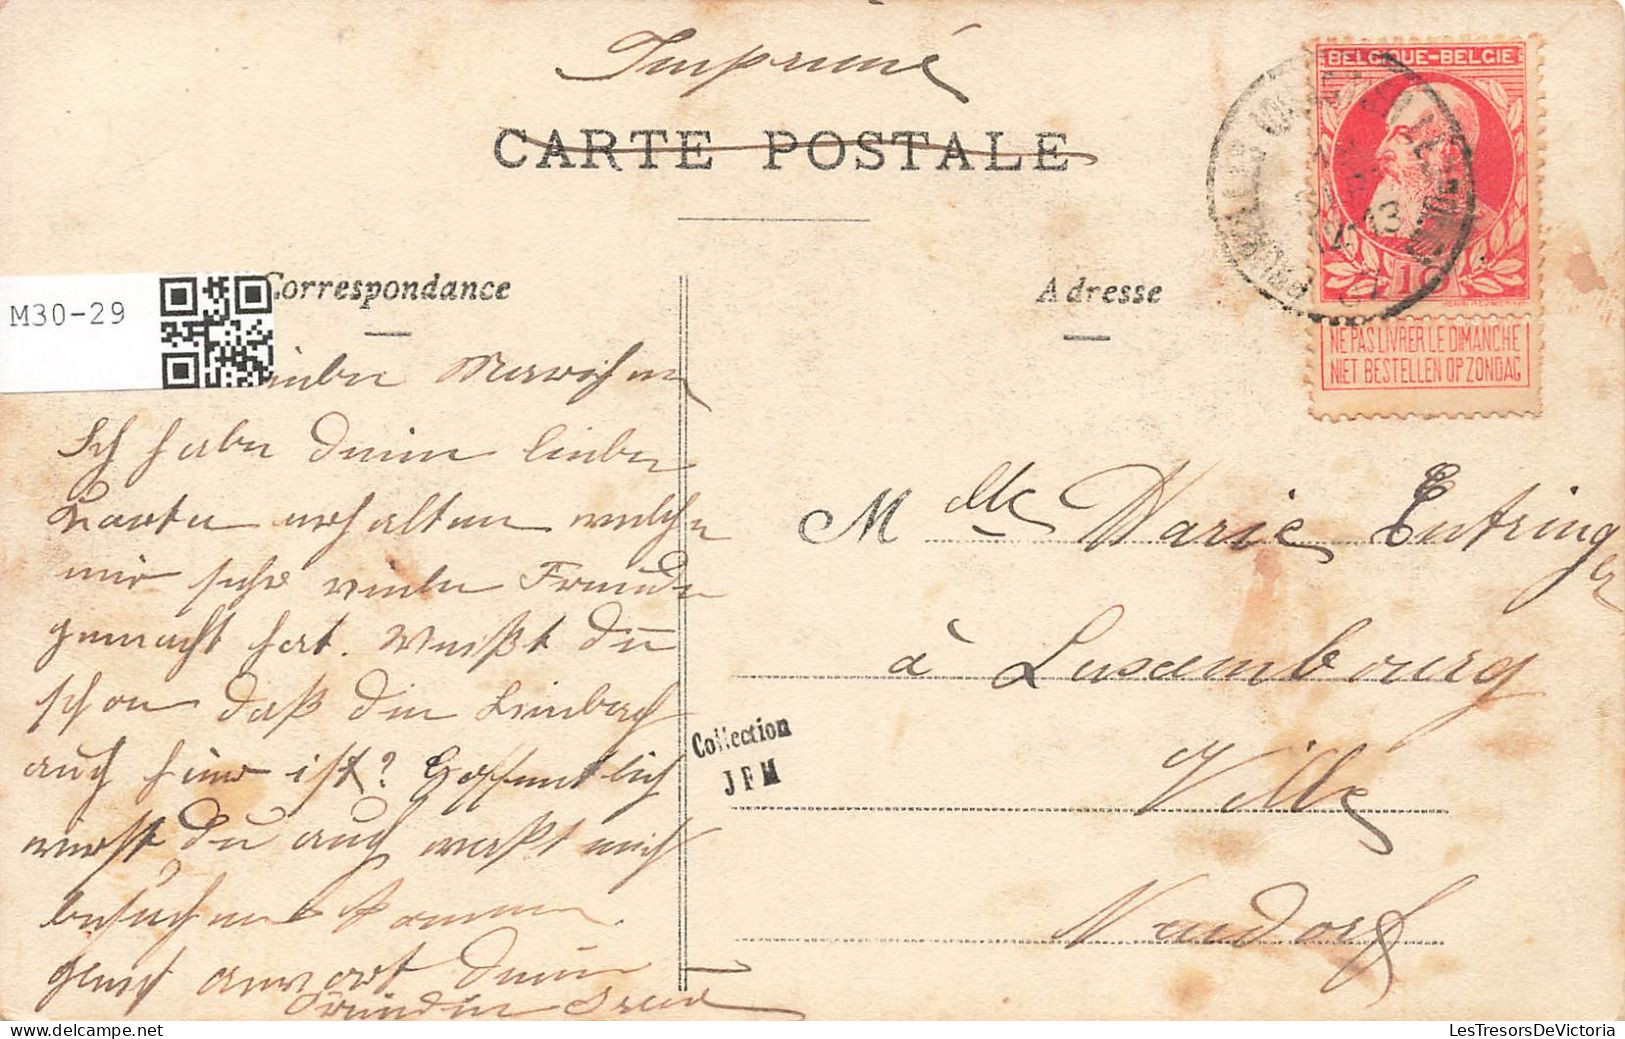 Imprimé
CARTE POSTALE
BELGIQUE-BELGIE
10
NE PAS LIVRER LE DIMANCHE
NIET BESTELLEN OP ZONDAG
M30-29
Correspondance
Liebe
Ich habe deine liebe
Karte erhalten welche
mir sehr viele Freude
gemacht hat. Weißt du
schon daß die Limbach
auch hier ist? Hoffentlich
wirst du auch mich
besuchen kommen.
Deine
Freundin
Adresse
Mlle Marie Entringer
à Luxembourg
Ville
Neudorf
Collection
JFM
LesTresorsDeVictoria